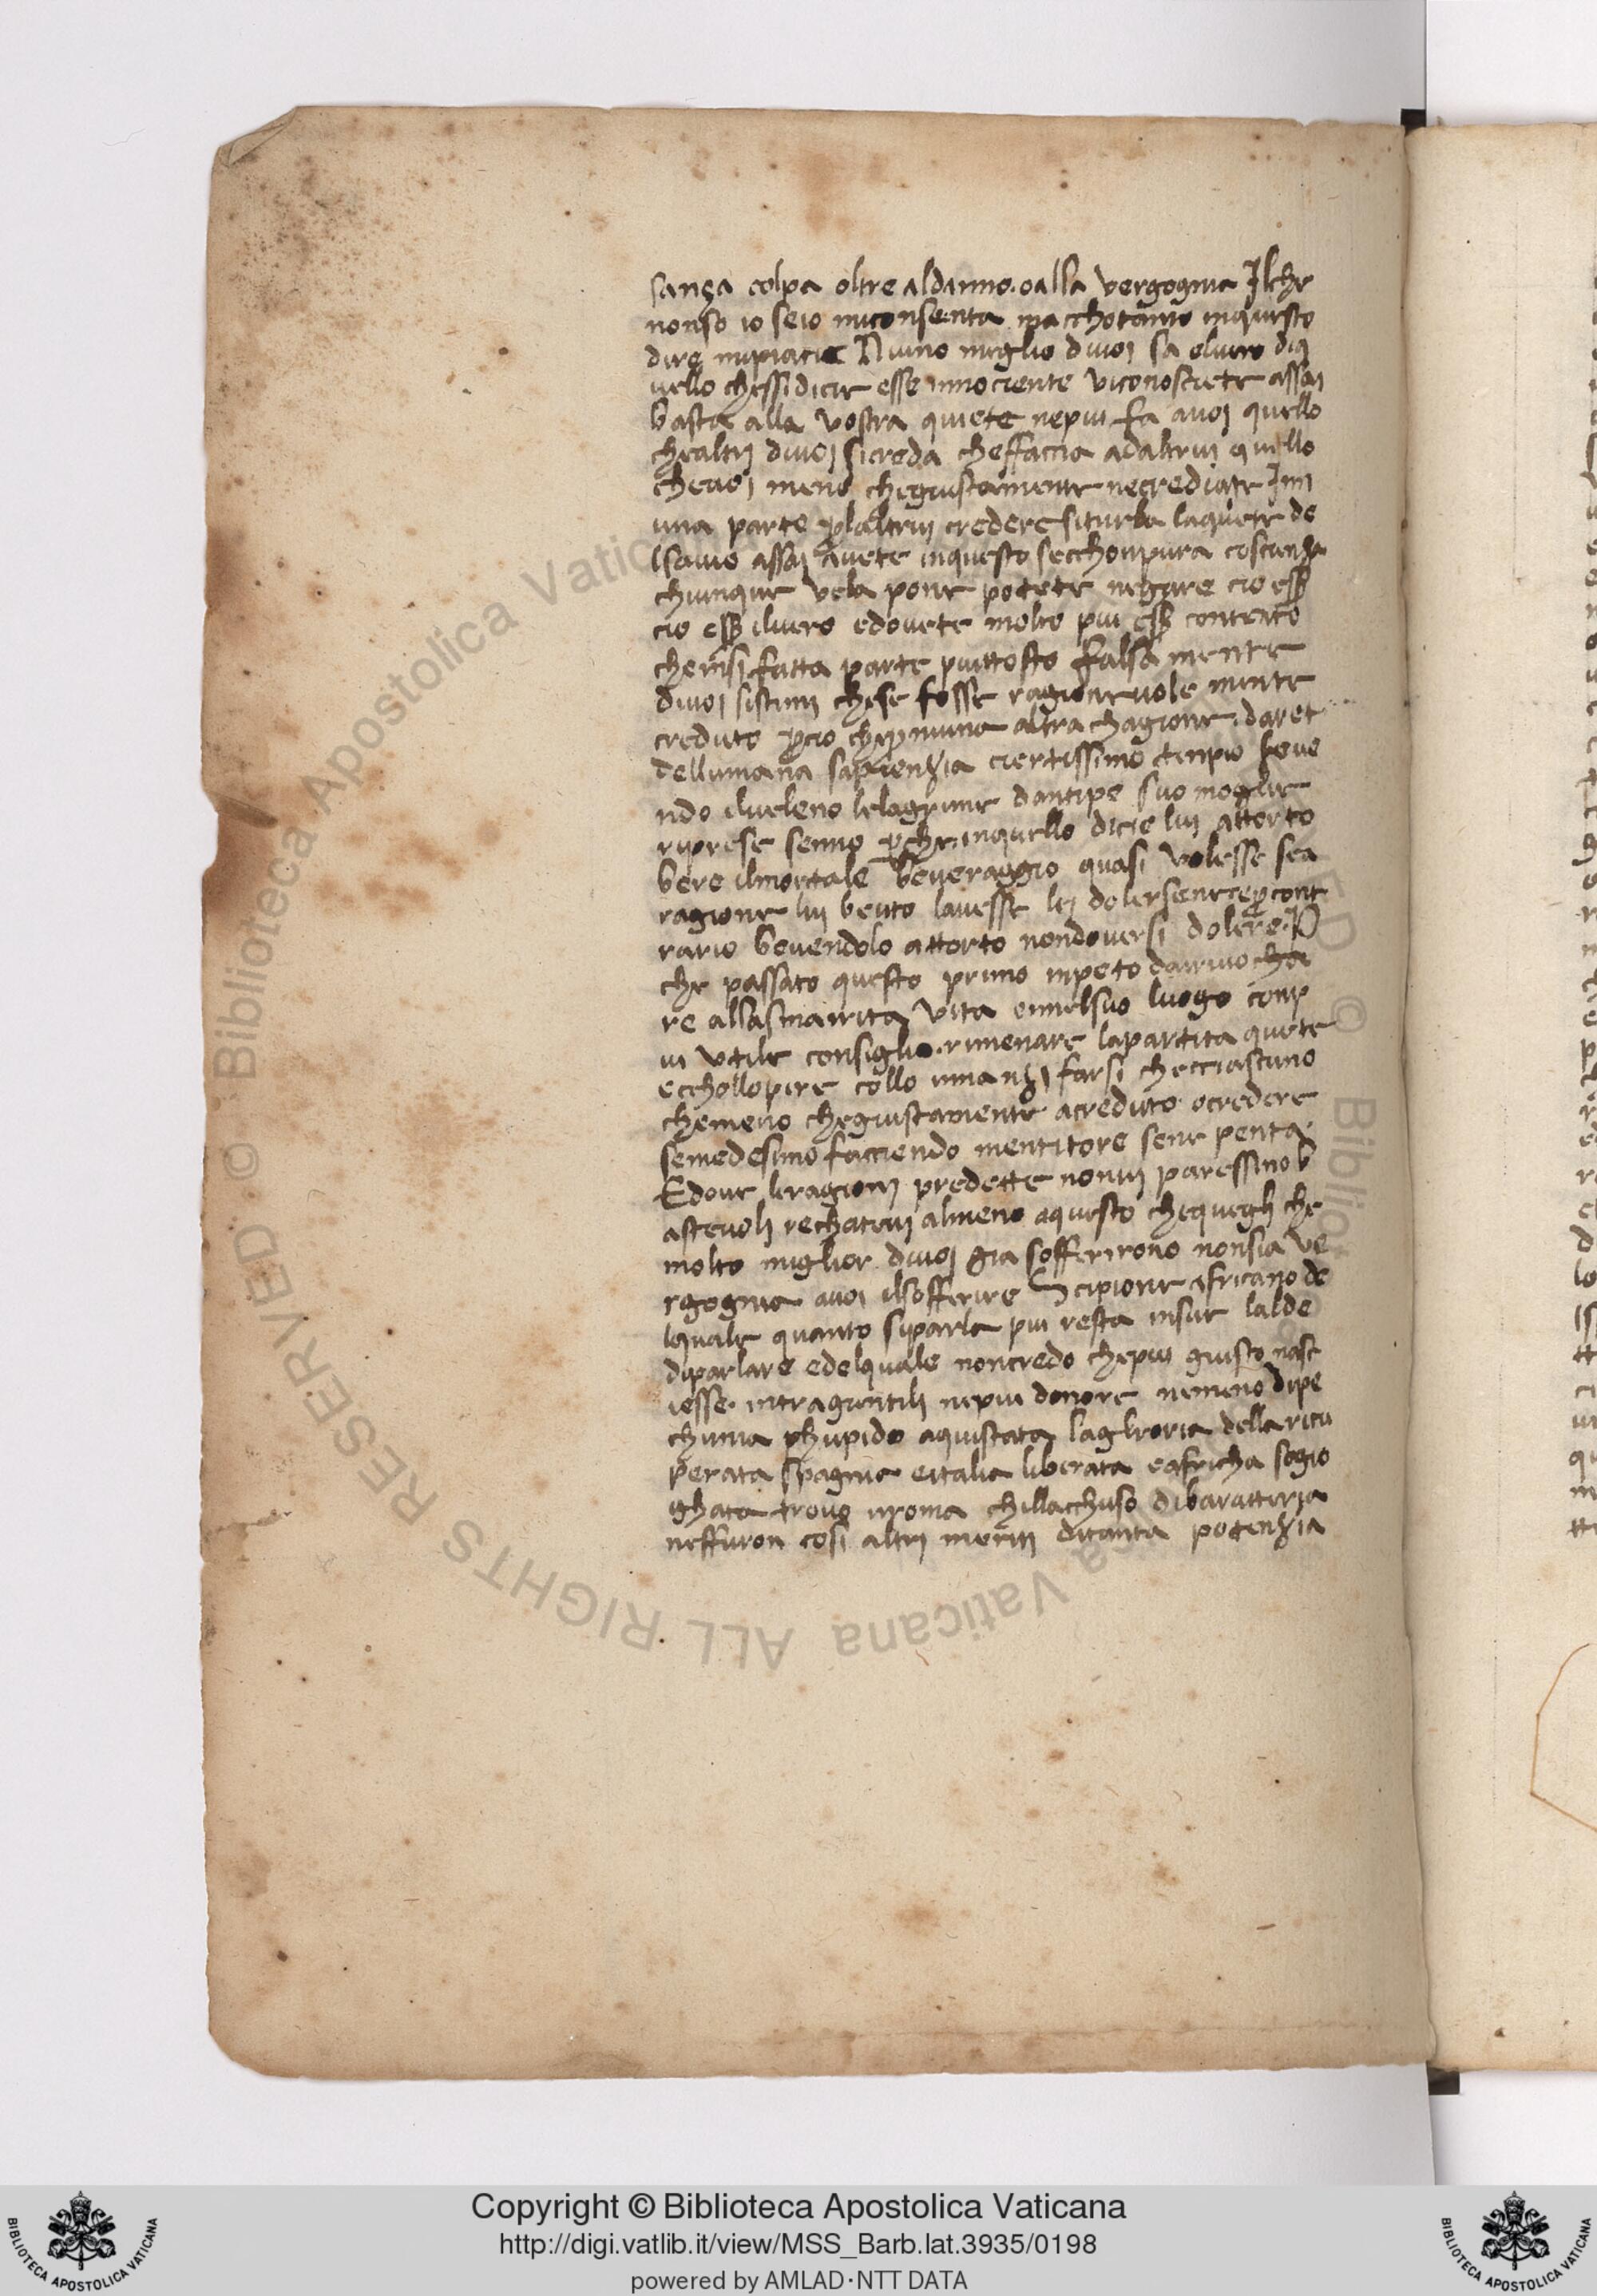 sanza colpa oltre aldanno. oalla vergogna Ilche
nonso io seio miconsenta macchotanto inquesto
dire mipiacie Niuno meglio divoi sa elvero diq
uello chessidicie esse innociente viconosciete assai
basta alla vostra quiete nepiu fa avoi quello
chealtri divoi sicreda cheffaccia adaltrui quello
chevoi meno chegiustamente necrediate Inn
una parte plaltrui credere siturba laquiete de
lsavio assai avete inquesto secchonpura coscienza
chiunque vela pone potete negare cio ess
cio ess ilvero edovete molto piu ess contento
chensi fatta parte piuttosto falsa mente
divoi sistimi chese fosse ragionevole mente
creduto pcio cheperniuna altra chagione. daret
dellumana sapienzia ciertissimo tenpio beve
ndo ilveleno lelagrime dantipe suo moglie
riprese senno pche inquello dicie lui attorto
bere ilmortale beveraggio quasi volesse sea
ragione lui beuto lavesse lei dolersene epcont
rario bevendolo attorto nondoversi dolere. P
che passato questo primo inpeto darivo cha
re allasmarrita vita ennelsuo luogo conp
iu utile consiglio. rimenare lapartita quiete
ecchollopere collo innanzi farsi checciascuno
chemeno chegiustamente acreduto ocredere
semedesimo facciendo mentitore sene penta.
Edove leragioni predette nonvi paressino b
astevoli rechatevi almeno aquesto chequegli che
molto miglior divoi gia sofferirono nonsia ve
rgogna avoi ilsofferire Scipione africano de
lquale quanto siparla piu resta insue lalde
diparlare edelquale noncredo chepiu giusto nasc
iesse. intragientili nepiu donore nemeno dipe
chunia chupido aquistata lagroria della ricu
perata spagna eitalia liberata eafricha sogio
ghata trovo irroma chillacchuso dibaratteria
neffuron cosi altri meriti ditanta potenzia
Copyright © Biblioteca Apostolica Vaticana
http://digi.vatlib.it/view/MSS_Barb.lat.3935/0198
powered by AMLAD·NTT DATA